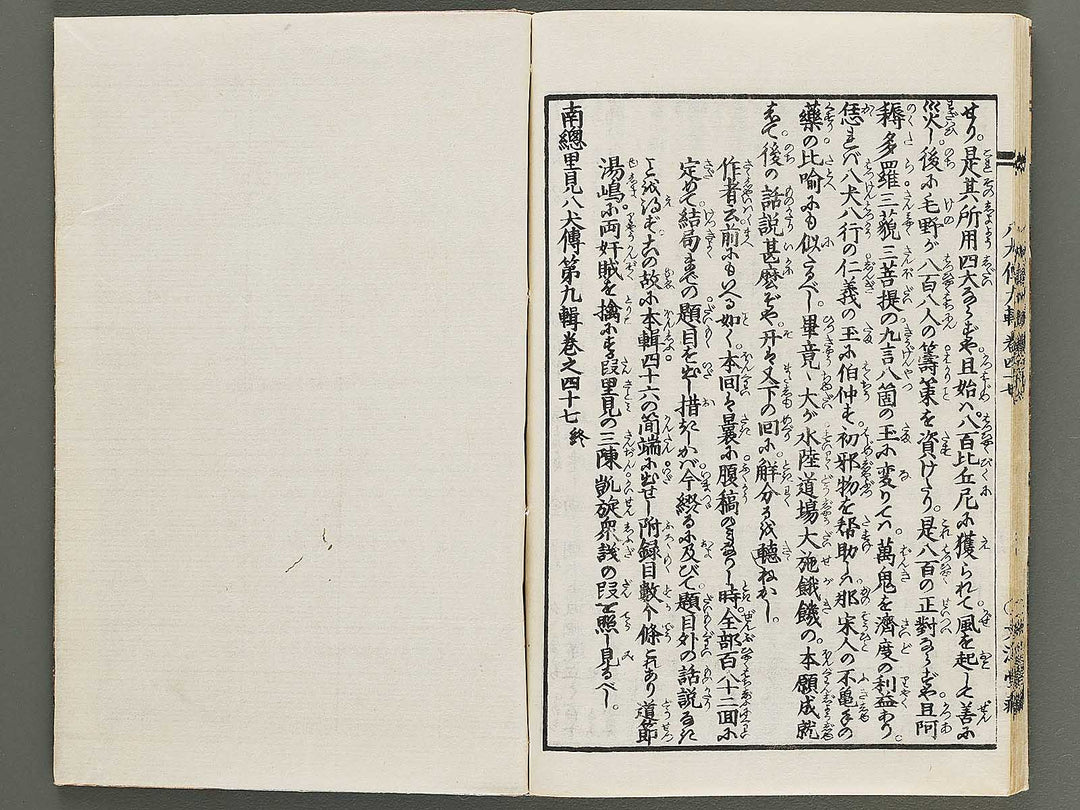 せり。是其所用四大ならずや。且始ハ。八百比丘尼に獲られて。風を起して善に
災し。後に毛野が八百八人の籌策を資けたり。是八百の正對ならずや。且阿
耨多羅三藐三菩提の九言八箇の玉に変りてハ。萬鬼を濟度の利益あり。
恁れバ八犬八行の仁義の玉に伯仲す。初邪物を帮助しハ。那宋人の不亀手の
藥の比喩にも似たるべし。畢竟ヽ大が水陸道場大施餓鬼の。本願成就
して。後の話説甚麼ぞや。开ハ又下の回に。解分るを聴ねかし。
作者云。前にもいへる如く。本回ハ曩に腹稿のなりし時。全部百八十二回に
定めて。結局までの題目を出し措たりしかバ。今綴るに及びて。題目外の話説なき
ことを得ず。この故に本輯四十六の簡端に出せし。附録目數个條これあり。道節
湯嶋に両奸賊を擒にする段。里見の三陳凱旋衆議の段を照し見るべし。
南總里見八犬傳第九輯巻之四十七 終
八犬傳九輯 巻四十七